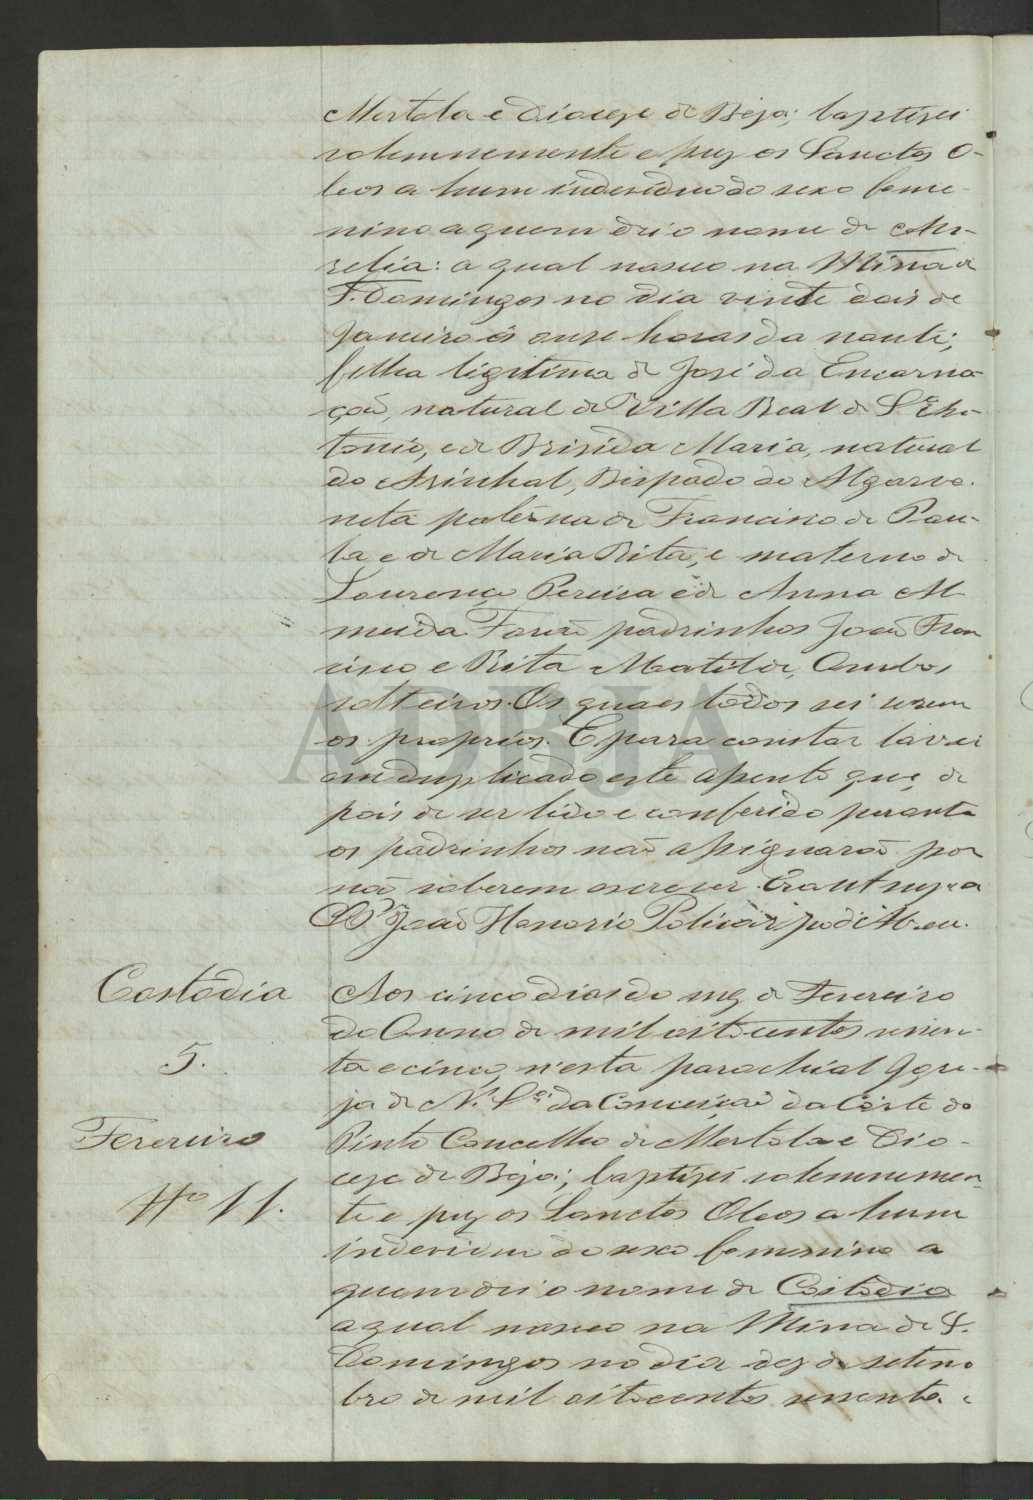 Mertola e Diocese de Beja; baptizei
solemnemente e puz os Sanctos O-
leos a hum individuo do sexo feme-
nino a quem dei o nome de Au-
relia: a qual nasceo na Mina de
S. Domingos no dia vinte dois de
Janeiro ás onze horas da noute;
filha ligitima de José da Encarna-
ção, natural de Villa Real de St.º An-
tonio, e de Brisida Maria, natural
do Asinhal, Bispado do Algarve.
neta paterna de Francisco de Pau-
la e de Maria Rita, e materno de
Lourenço Pereira e de Anna Al-
meida Forão padrinhos João Fran
cisco e Rita Matilde, Ambos
solteiros. Os quaes todos sei serem
os proprios. E para constar lavrei
em duplicado este assento que, de
pois de ser lido e conferido perante
os padrinhos não assignarão por
não saberem escrever. Era ut supra
O P.r João Honorio Policarpo de Abreu.
Costodia
5.
Fevereiro
Nº 11.
Aos cinco dias do mez de Fevereiro
do Anno de mil oitocentos sessen-
ta e cinco, n'esta parochial Igre-
ja de N. S.ª da Conceição da Corte do
Pinto Concelho de Mertola e Dio-
cese de Beja; baptizei solemnemen-
te e puz os Sanctos Oleos a hum
individuo do sexo femenino a
quem dei o nome de Costodia
a qual nasceo na Mina de S.
Domingos no dia dez de setem
bro de mil oitocentos sessenta e
ADBJA